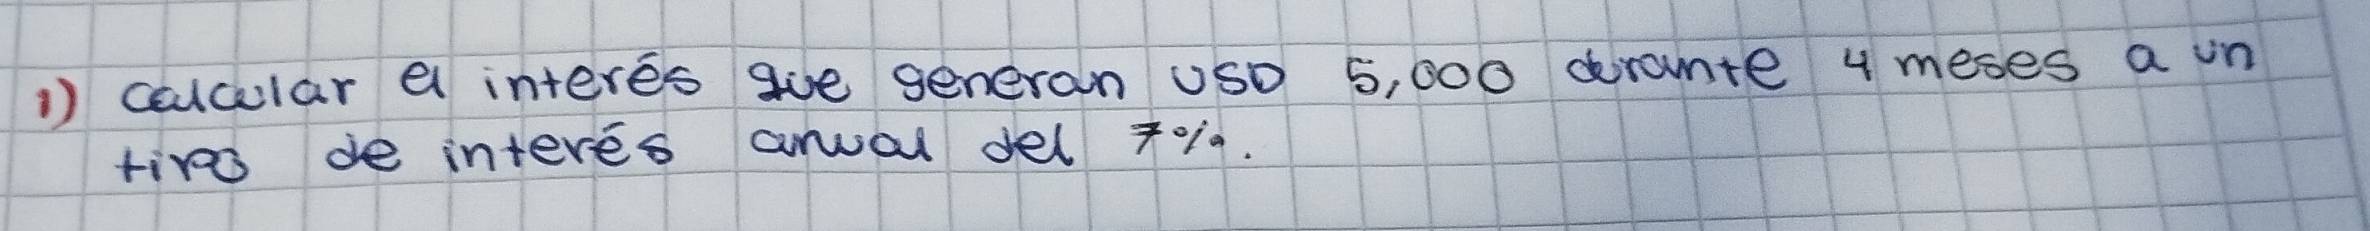 1) calcular el interés que generan USD 5,000 durante 4 meses a un
tipo de interés anual del 7%.